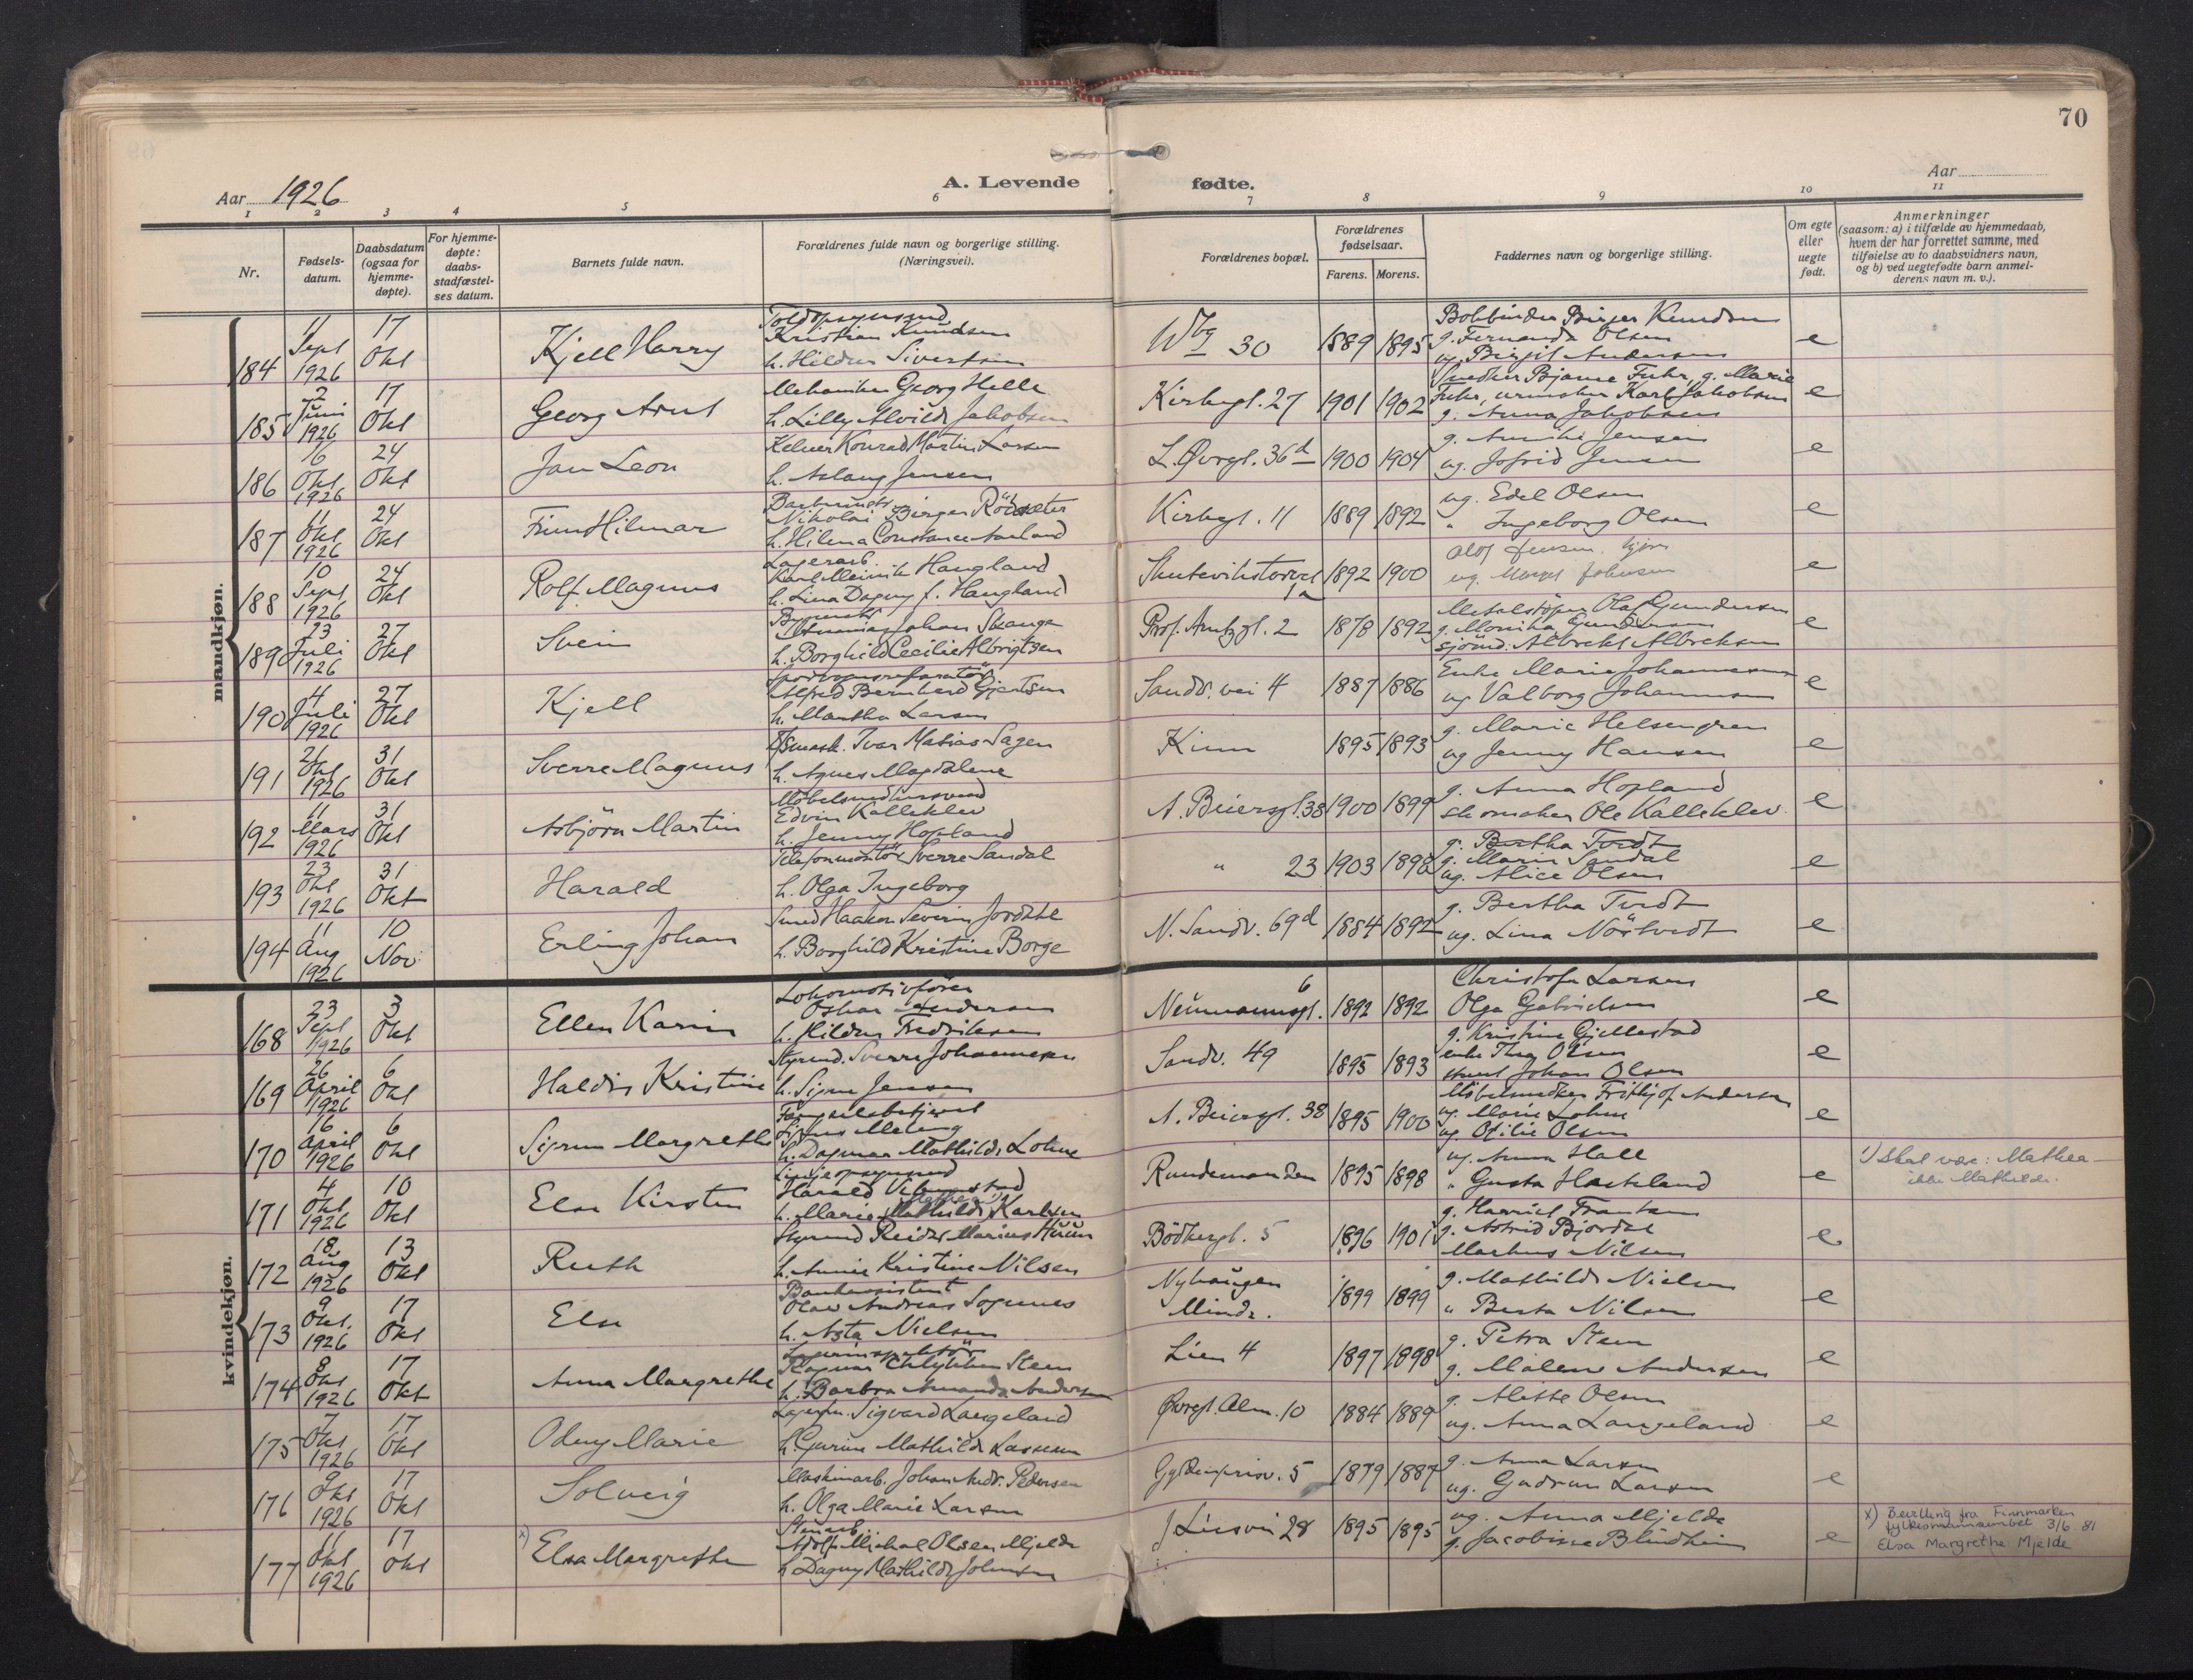 70
Aar 1926
A. Levende fødte.
Aar
1 2 3 4 5 6 7 8 9 10 11
Nr.
Fødsels-
datum.
Daabsdatum
(ogsaa for
hjemme-
døpte).
For hjemme-
døpte:
daabs-
stadfæstel-
ses datum.
Barnets fulde navn.
Forældrenes fulde navn og borgerlige stilling.
(Næringsvei).
Forældrenes bopæl.
Forældrenes
fødselsaar.
Farens. Morens.
Faddernes navn og borgerlige stilling.
Om egte
eller
uegte
født.
Anmerkninger
(saasom: a) i tilfælde av hjemmedaab,
hvem der har forrettet samme, med
tilføielse av to daabsvidners navn,
og b) ved uegtefødte barn anmel-
derens navn m. v.).
mandkjøn.
184 11 Sept 1926 17 Okt Kjell Harry Kristian Knudsen h. Hildur Sivertsen 30 1889 1895 Birger Knudsen g. Fernanda Olsen ug. Birgit Andersen e
185 2 Juni 1926 17 Okt Georg Arnt Mekaniker Georg Helle h. Lilly Alvilde Jakobsen Kirkegt. 27 1901 1902 Bjarne Fuhr, g. Marie Fuhr, urmaker Karl Jakobsen g. Anna Jakobsen e
186 6 Okt 1926 24 Okt Jan Leon Kelner Konrad Martin Larsen h. Aslaug Jensen L. Øvregt. 36d 1900 1904 g. Jensen ug. Jofrid Jensen e
187 11 Okt 1926 24 Okt Finn Hilmar Nikolai Birger h. Hilma Constance Aarland Kirkegt. 11 1889 1892 ug. Edel Olsen " Ingeborg Olsen e
188 10 Sept 1926 24 Okt Rolf Magnus Lagerarb. Karl Meinik Haugland h. Lina Dagny f. Haugland Skutevikstorvet 1a 1892 1900 Olof Jensen ug. Margit Johnsen e
189 23 Juli 1926 27 Okt Svein Johan Skauge h. Borghild Cecilie Albrigtsen Prof. Arntzgt. 2 1878 1892 Metalstøper Olaf Gundersen g. Monika Gundersen sjömd. Albrekt Albreksen e
190 4 Juli 1926 27 Okt Kjell Sporvognsreparatör Alfred Bernhard Gjertsen h. Martha Larsen Sandv. vei 4 1887 1886 Enke Marie Johannesen ug Valborg Johannesen e
191 21 Okt 1926 31 Okt Sverre Magnus Ivar Matias Sagen h. Agnes Magdalene Kinn 1895 1893 g. Marie Helsengren ug Jenny Hansen e
192 11 Mars 1926 31 Okt Asbjörn Martin Möbelsnedkersvend Edvin Kalleklev h. Jenny Hopland A. Beiersgt. 38 1900 1899 g. Anna Hopland skomaker Ole Kalleklev e
193 23 Okt 1926 31 Okt Harald Telefonmontör Sverre Sandal h. Olga Ingeborg " 23 1903 1898 g. Bertha Tvedt g. Marie Sandal ug. Alice Olsen e
194 11 Aug 1926 10 Nov Erling Johan Smed Haakon Severin h. Borghild Kristine Borge N. Sandv. 69d 1884 1892 g. Bertha Tvedt ug. Lina Nöstvedt e
kvindekjøn.
168 23 Sept 1926 3 Okt Ellen Karin Lokomotivförer Oskar Andersen h. Hildur Fredriksen Neumannsgt. 6 1892 1892 Christofa Larsen Olga Gabrielsen e
169 26 April 1926 6 Okt Haldis Kristine Styrmd. Sverre Johannesen h. Signe Jensen Sandv. 49 1895 1893 g. Kristine Gjellestad enke Olsen Johan Olsen e
170 16 April 1926 6 Okt Sigrun Margrethe Fængselsbetjent Meling h. Dagmar Mathilde Lohne A. Beiersgt. 38 1895 1900 Möbelsnedker Frithjof Andersen ug. Marie Lohne ug. Otilie Olsen e
171 4 Okt 1926 10 Okt Else Kirsten Linjeopsynsmd Harald h. Marie Mathilde Karlsen Mathea 1) Rundemanden 1895 1898 ug. Anna Hall " Gusta Hasteland e 1) Skal være: Mathea – ikke Mathilde.
172 18 Aug 1926 13 Okt Ruth Styrmd Reidar Marius h. Annie Kristine Nilsen Bödkergt. 5 1896 1901 g. Harriet Frantzen g. Astrid Bjordal Markus Nilsen e
173 9 Okt. 1926 17 Okt Else Bankassistent Olav Andreas Sognnes h. Asta Nielsen Nyhaugen Minde. 1899 1899 g. Mathilde Nielsen " Berta Nilsen e
174 8 Okt 1926 17 Okt Anna Margrethe Ragnar Steen h. Barbra Amanda Andersen Lien 4 1897 1898 g. Petra Steen g. Malene Andersen e
175 7 Okt 1926 17 Okt Odny Marie Sigvard Langeland h. Gurine Mathilde Lassesen Øvregt. Alm. 10 1884 1889 g. Olsen ug. Anna Langeland e
176 9 Okt 1926 17 Okt Solveig Maskinarb. Johan Andr. Pedersen h. Olga Marie Larsen Gyldenprisv. 5 1879 1887 g. Anna Larsen ug. Gudrun Larsen e
177 11 Okt 1926 17 Okt x) Elsa Margrethe Adolf Mickal Olsen Mjelde h Dagny Mathilde Johnsen 28 1895 1895 ug. Anna Mjelde g. Jacobine Blindheim e x) Bevilling fra Finnmarken fylkesmannsembet 3/6 81 Elsa Margrethe Mjelde